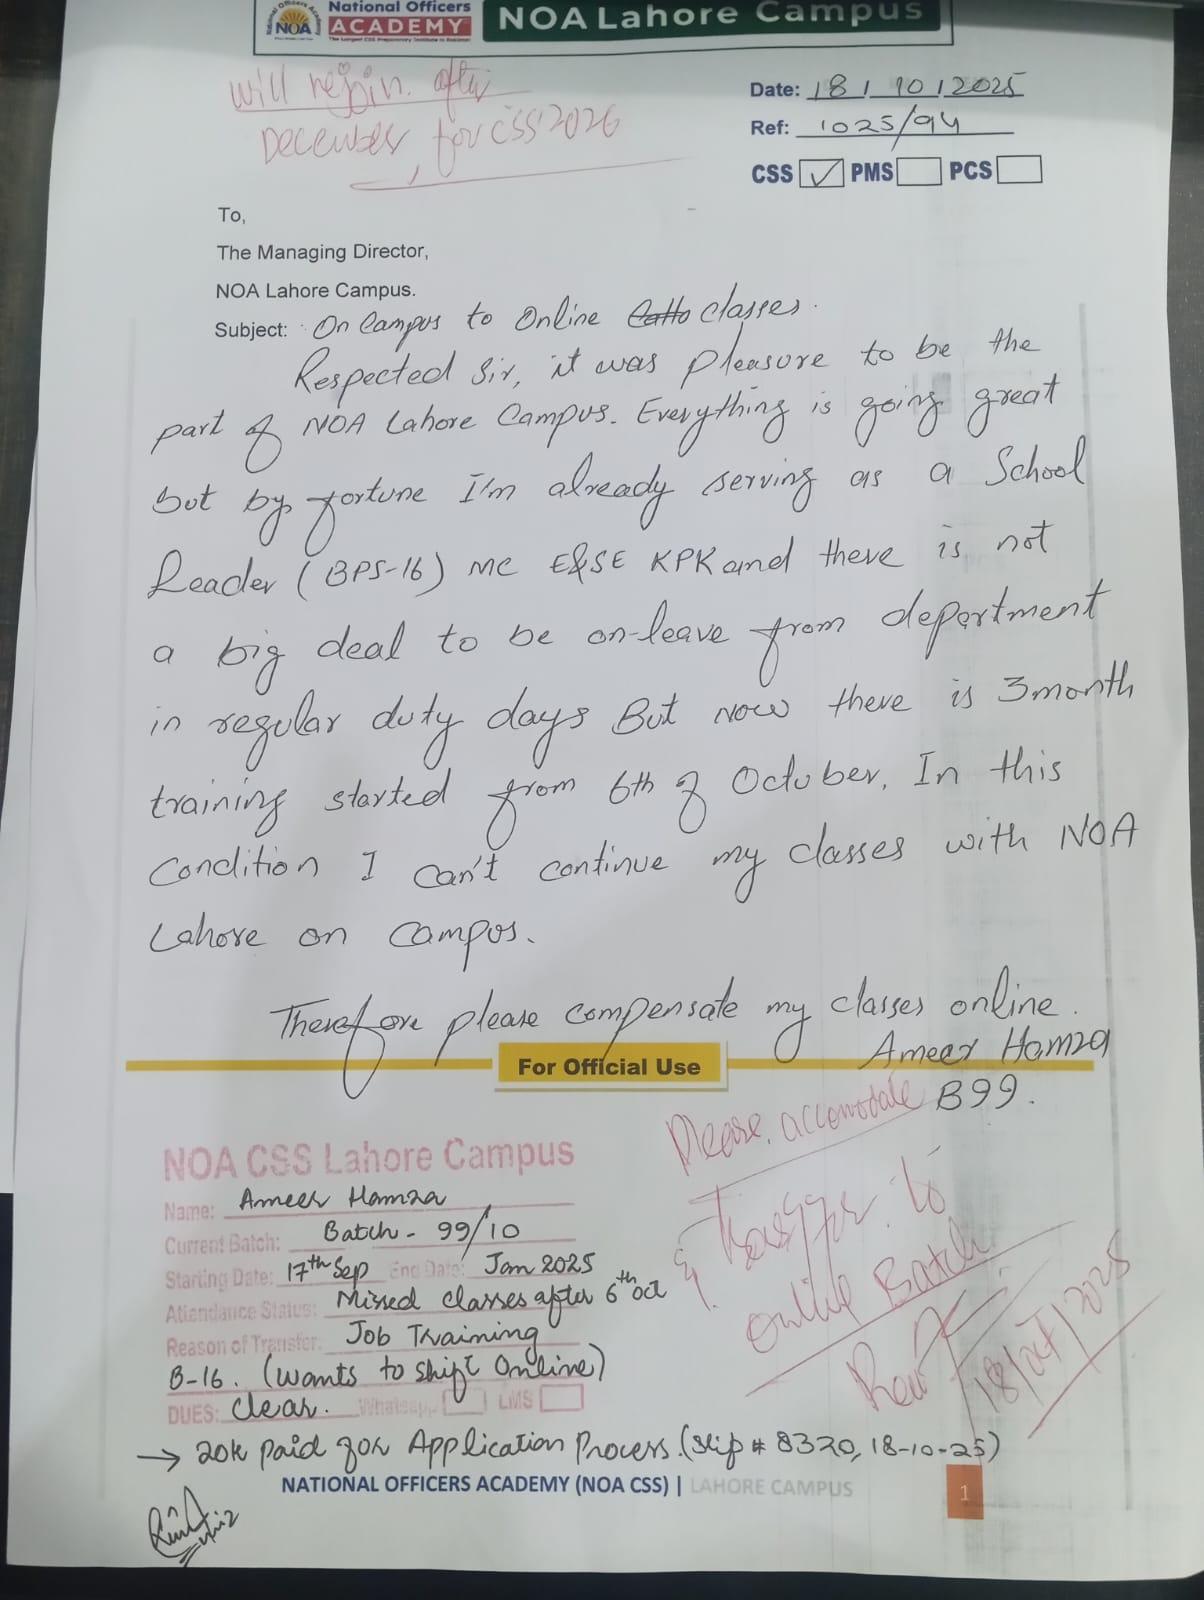 National Officers
ACADEMY
NOA
NOA Lahore Campus
will rejoin after
December, for CSS 2026
Date: 18/10/2025
Ref: 1025/94
CSS ✓ PMS PCS
To,
The Managing Director,
NOA Lahore Campus.
Subject: On Campus to Online classes.
Respected Sir, it was pleasure to be the
part of NOA Lahore Campus. Everything is going great
but by fortune I'm already serving as a School
Leader (BPS-16) MC E&SE KPK and there is not
a big deal to be on-leave from department
in regular duty days But now there is 3month
training started from 6th of October. In this
Condition I can't continue my classes with NOA
Lahore on campus.
Therefore please compensate my classes online.
Ameer Hamza
B99.
For Official Use
Please. accomodate
& Transfer to
online Batch
18/oct/2025
NOA CSS Lahore Campus
Name: Ameer Hamza
Current Batch: Batch - 99/10
Starting Date: 17th Sep End Date: Jan 2025
Attendance Status: Missed classes after 6th oct
Reason of Transfer: Job Training
B-16. (wants to shift Online)
DUES: Clear. Whatsapp LMS
→ 20k paid for Application Process. (Slip # 8320, 18-10-25)
NATIONAL OFFICERS ACADEMY (NOA CSS) | LAHORE CAMPUS
1